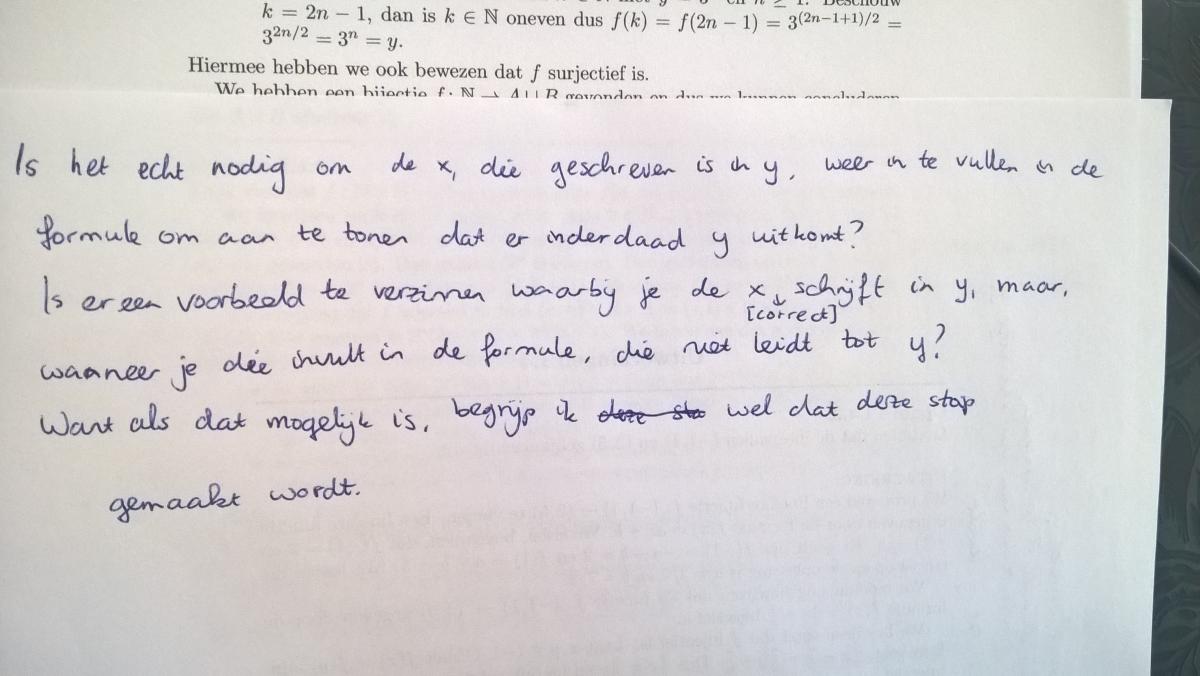 k = 2n − 1, dan is k ∈ ℕ oneven dus f(k) = f(2n − 1) = 3^{(2n−1+1)/2} =
3^{2n/2} = 3^n = y.
Hiermee hebben we ook bewezen dat f surjectief is.
We hebben een bijectie f : ℕ → A ∪ B gevonden en dus we kunnen concluderen
Is het echt nodig om de x, die geschreven is in y, weer in te vullen in de
formule om aan te tonen dat er inderdaad y uitkomt?
Is er een voorbeeld te verzinnen waarbij je de x schrijft in y, maar,
[correct]
waaneer je dée invult in de formule, die niet leidt tot y?
Want als dat mogelijk is, begrijp ik wel dat deze stap
gemaakt wordt.